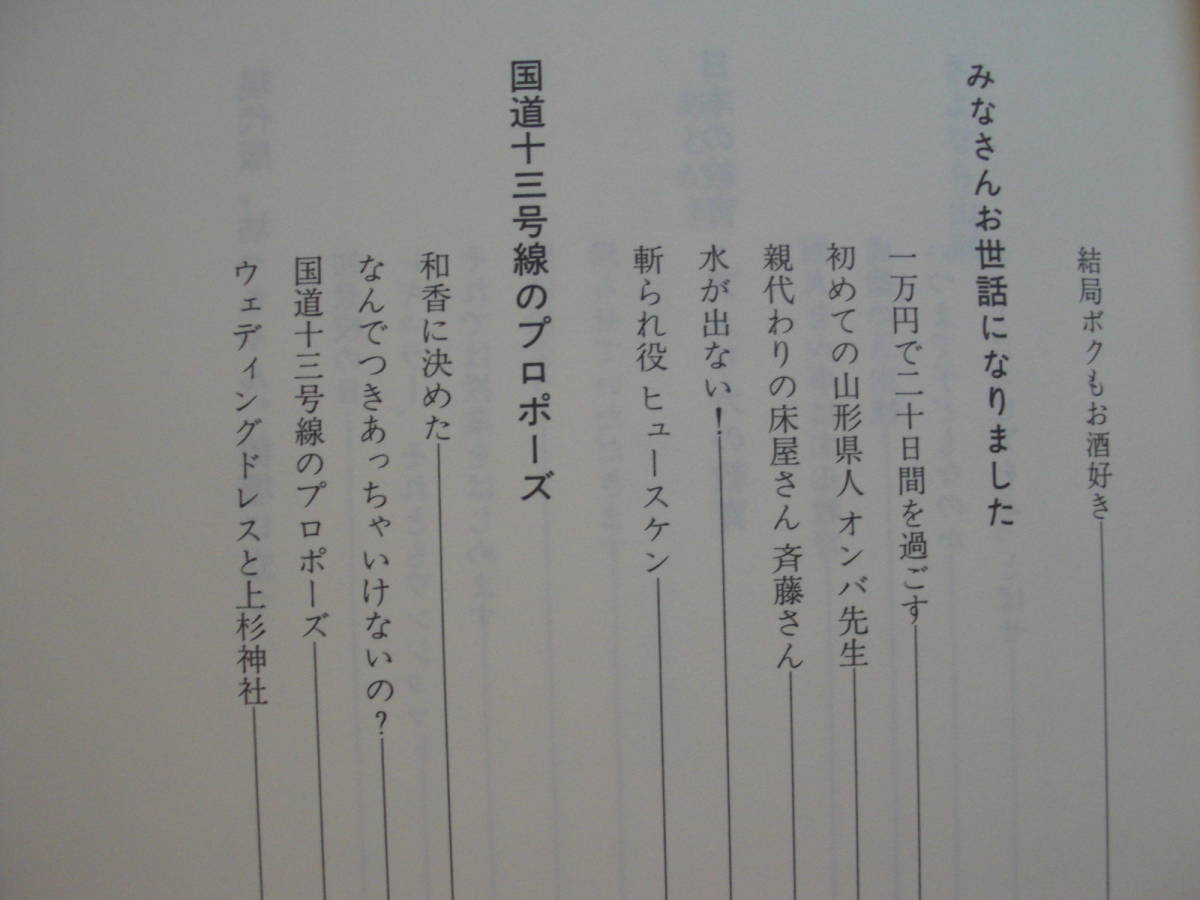 結局ボクもお酒好き
みなさんお世話になりました
一万円で二十日間を過ごす
初めての山形県人 オンバ先生
親代わりの床屋さん 斉藤さん
水が出ない！
斬られ役 ヒュースケン
国道十三号線のプロポーズ
和香に決めた
なんでつきあっちゃいけないの？
国道十三号線のプロポーズ
ウェディングドレスと上杉神社